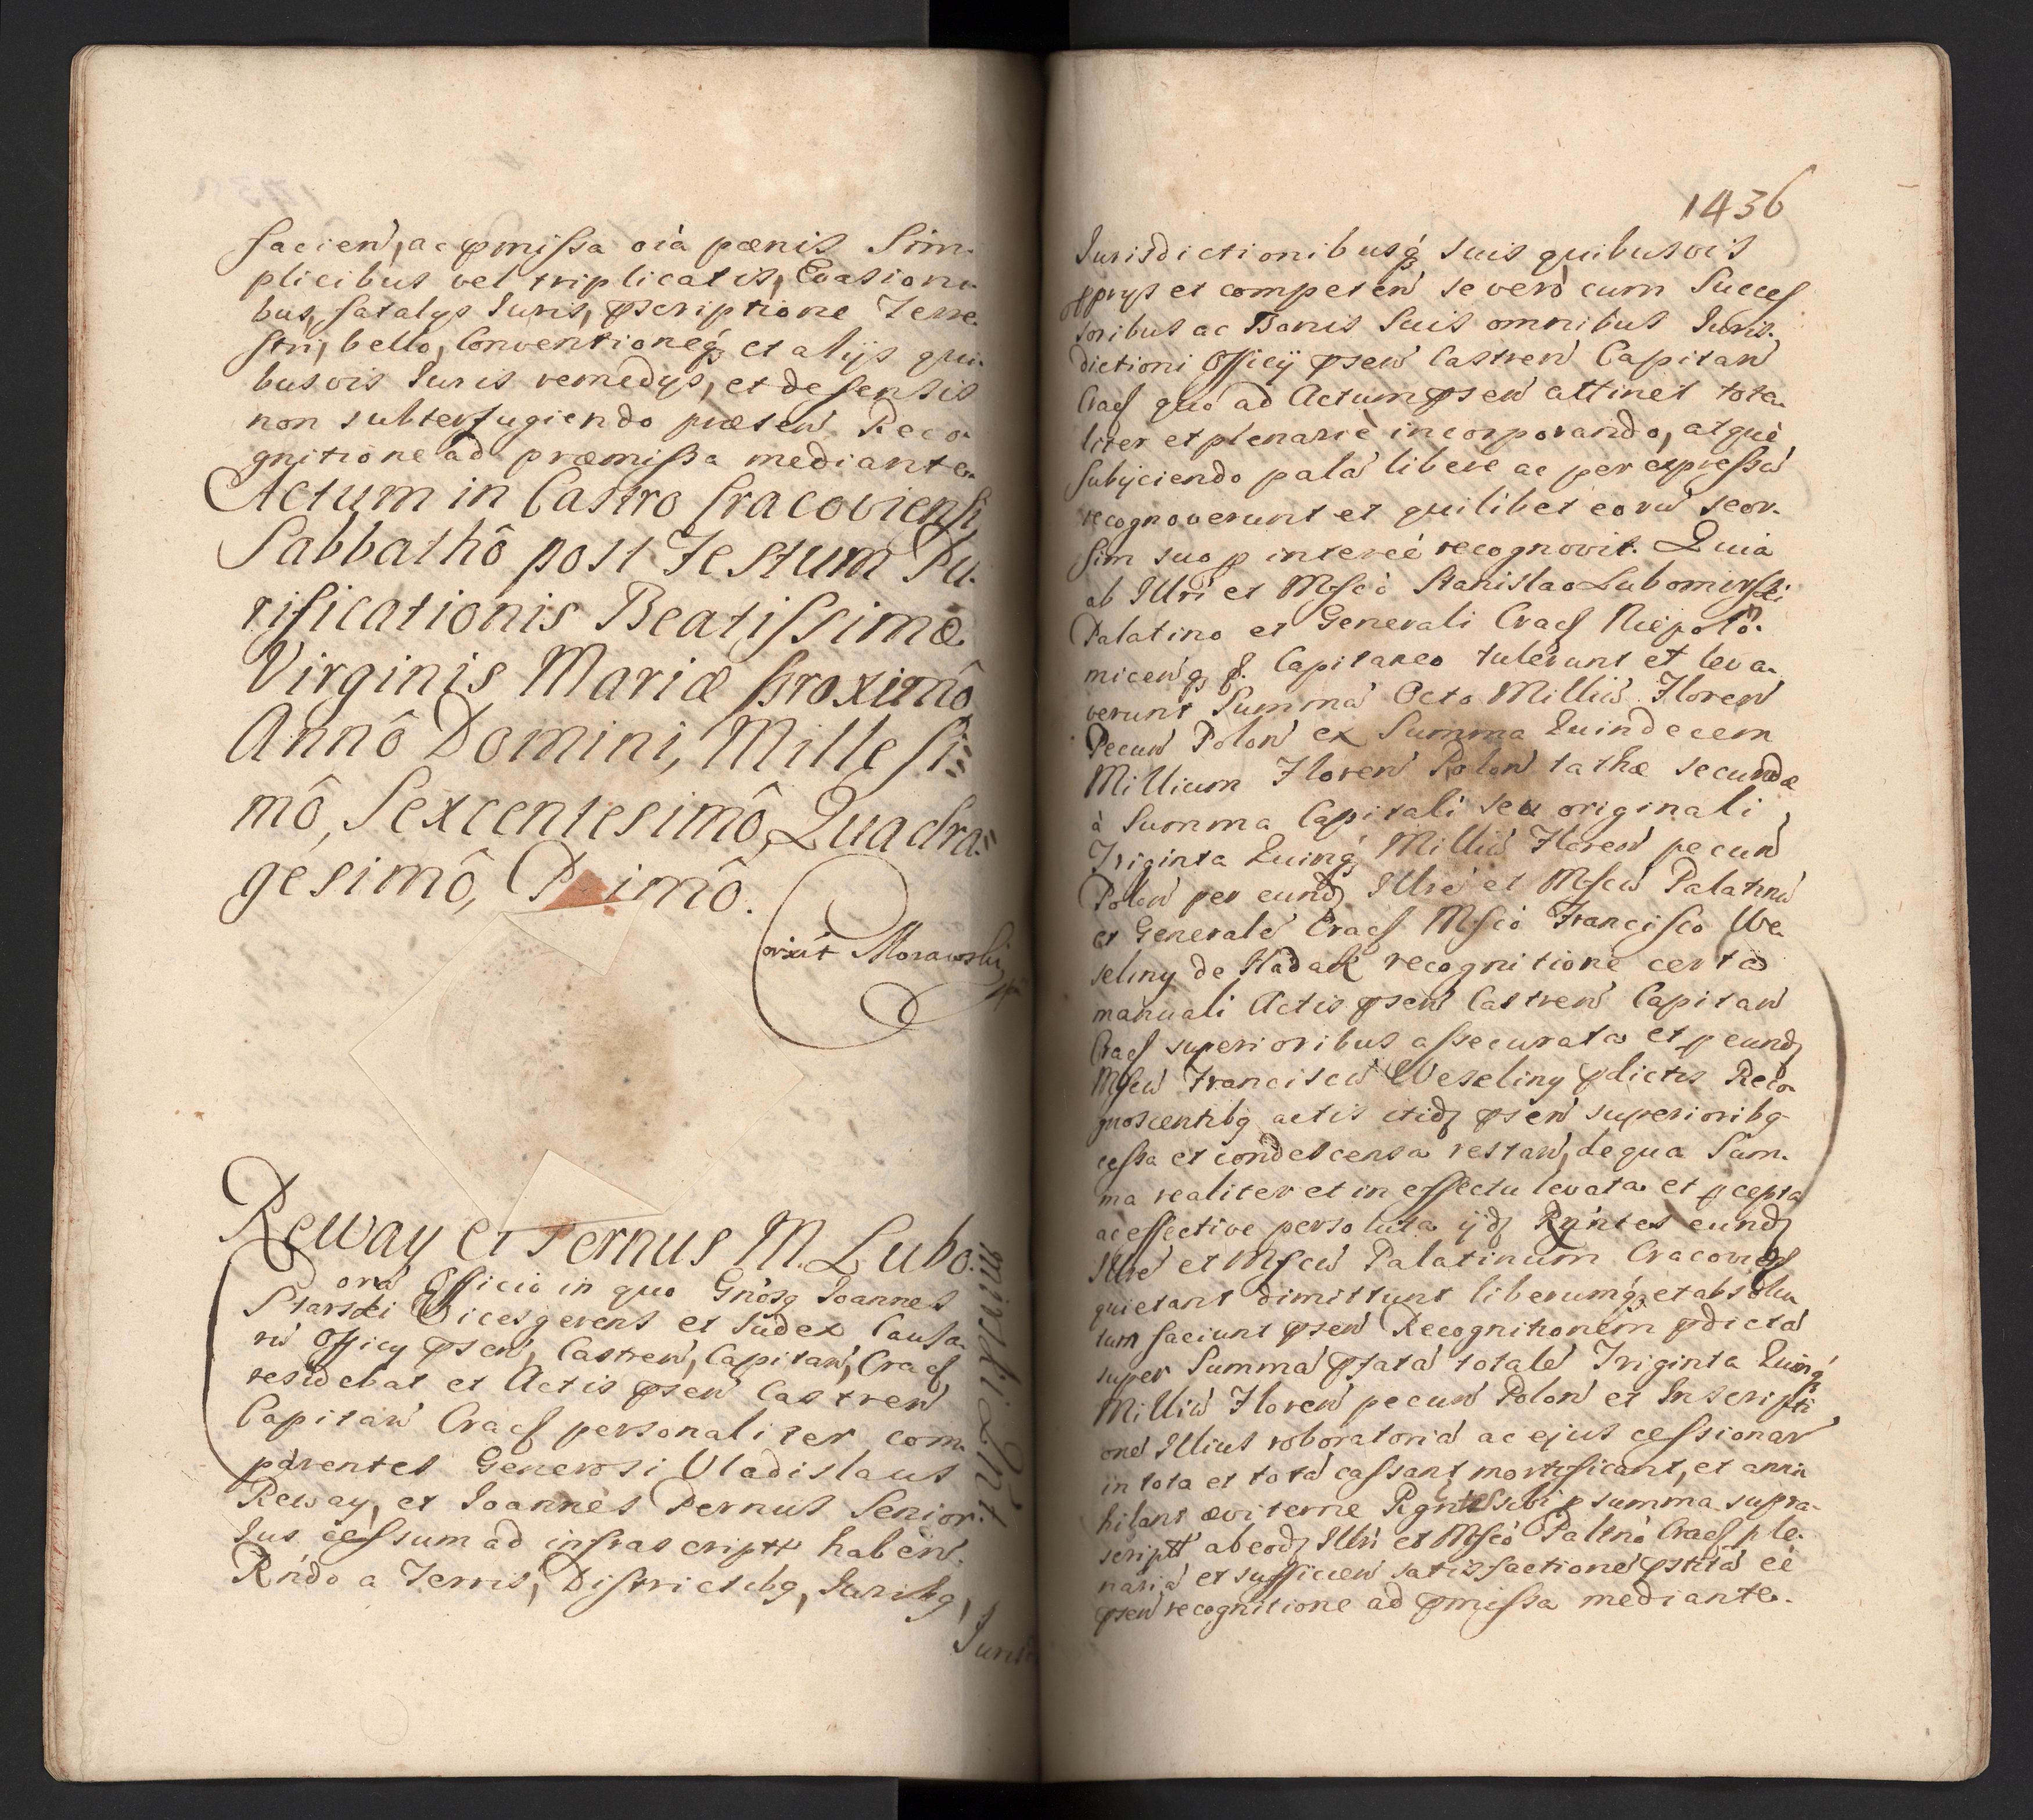 facien, ac pmissa oia pœnis Sim-
plicibus vel triplicatis, Evasioni-
bus, fatalys Iuris, pscriptione Terre-
stri, bello, Conventioneq, et alijs qui-
busvis Iuris remedys, et defensis
non subterfugiendo præsen Reco-
gnitione ad præmissa mediante
Actum in Castro Cracoviensi
Sabbathô post Festum Pu-
rificationis Beatissimæ
Virginis Mariæ proximô
Annô Domini, Millesi=
mô, Sexcentesimô, Quadra=
gesimô, P imô.
Morawski
Reway et Pernus M. Lubo-
mirski Qnt
ora Officio in quo Gnosq Ioannes
Starski Vicesgerens et Iudex Causa-
rú Officy psen, Castren, Capitan, Cracf
residebat et Actis psen Castren
Capitan Cracf personaliter com-
parentes Generosi Vladislaus
Reway, et Ioannes Pernus Senior
Ius cessum ad infrascriptt haben.
Rndo a Terris, Districtibq, Iuribq,
Juris
1436
Iurisdictionibusq suis quibusvis
pprys et competen se vero cum Succes
soribus ac Bonis Suis omnibus Juris-
dictioni Officij psen Castren Capitan
Cracf quo ad Actum psen attinet tota-
liter et plenarie incorporando, atque
subijciendo palá libere ac per expressú
recognoverunt et quilibet eorú seor-
sim suo p intereé recognovit. Quia
ab Illri et Mfico Stanislao Lubomirski
Palatino et Generali Cracf Niepolo-
micenq &. Capitaneo tulerunt et leva-
verunt Summá Octo Millió Floren
Pecun Polon ex Summa Quindecem
Millium Floren Polon rathæ secundæ
à Summa Capitali seu originali
Triginta Quinq Millió Floren pecun
Polon per eundq Illré et Mfcú Palatinú
et Generalé Cracf Mfico Francisco We-
seliny de Hadak recognitione certa
manuali Actis psen Castren Capitan
Cracf superioribus assecurata et p eundq
Mfcú Franciscú Weseliny pdictis Reco-
gnoscentibq actis itidq psen superioribq
cessa et condescensa restan, de qua Sum-
ma realiter et in effectu levata et pcepta
ac effective persoluta ijdq Rgntes eundq
Illré et Mfcú Palatinum Cracovief
quietant dimittunt liberumq, et absolu
tum faciunt psen Recognitionem pdictá
super Summá pfatá totalé Triginta Quinq
Millió Floren pecun Polon et Inscripti
oné Illius roboratoriá ac ejus cessionar
in tota et totá cassant mortificant, et anni
hilant æviterne Rgntes sibi p summa supra-
scriptt ab eodq Illri et Mfico Paltno Cracf ple-
nariá et sufficien satisfactioné pstitá eé
psen recognitione ad pmissa mediante.